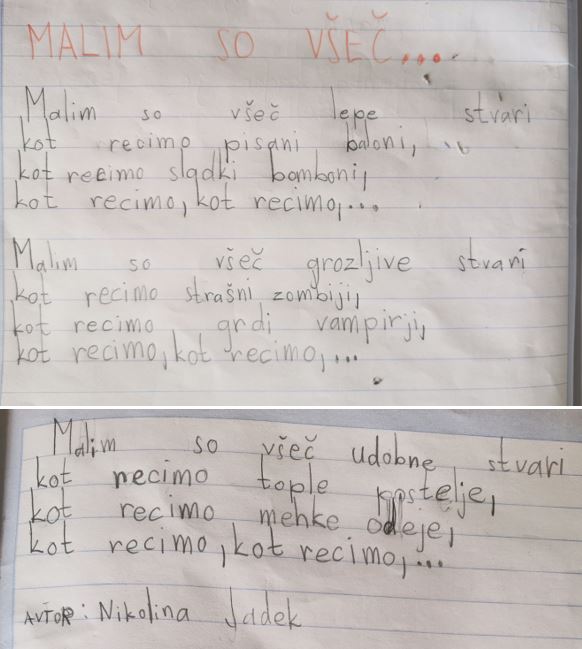 MALIM SO VŠEČ....
Malim so všeč lepe stvari
kot recimo pisani baloni,
kot recimo sladki bomboni,
kot recimo, kot recimo,...
Malim so všeč grozljive stvari
kot recimo strašni zombiji,
kot recimo grdi vampirji,
kot recimo, kot recimo,...
Malim so všeč udobne stvari
kot recimo tople postelje,
kot recimo mehke odeje,
kot recimo, kot recimo,...
AVTOR: Nikolina Jadek